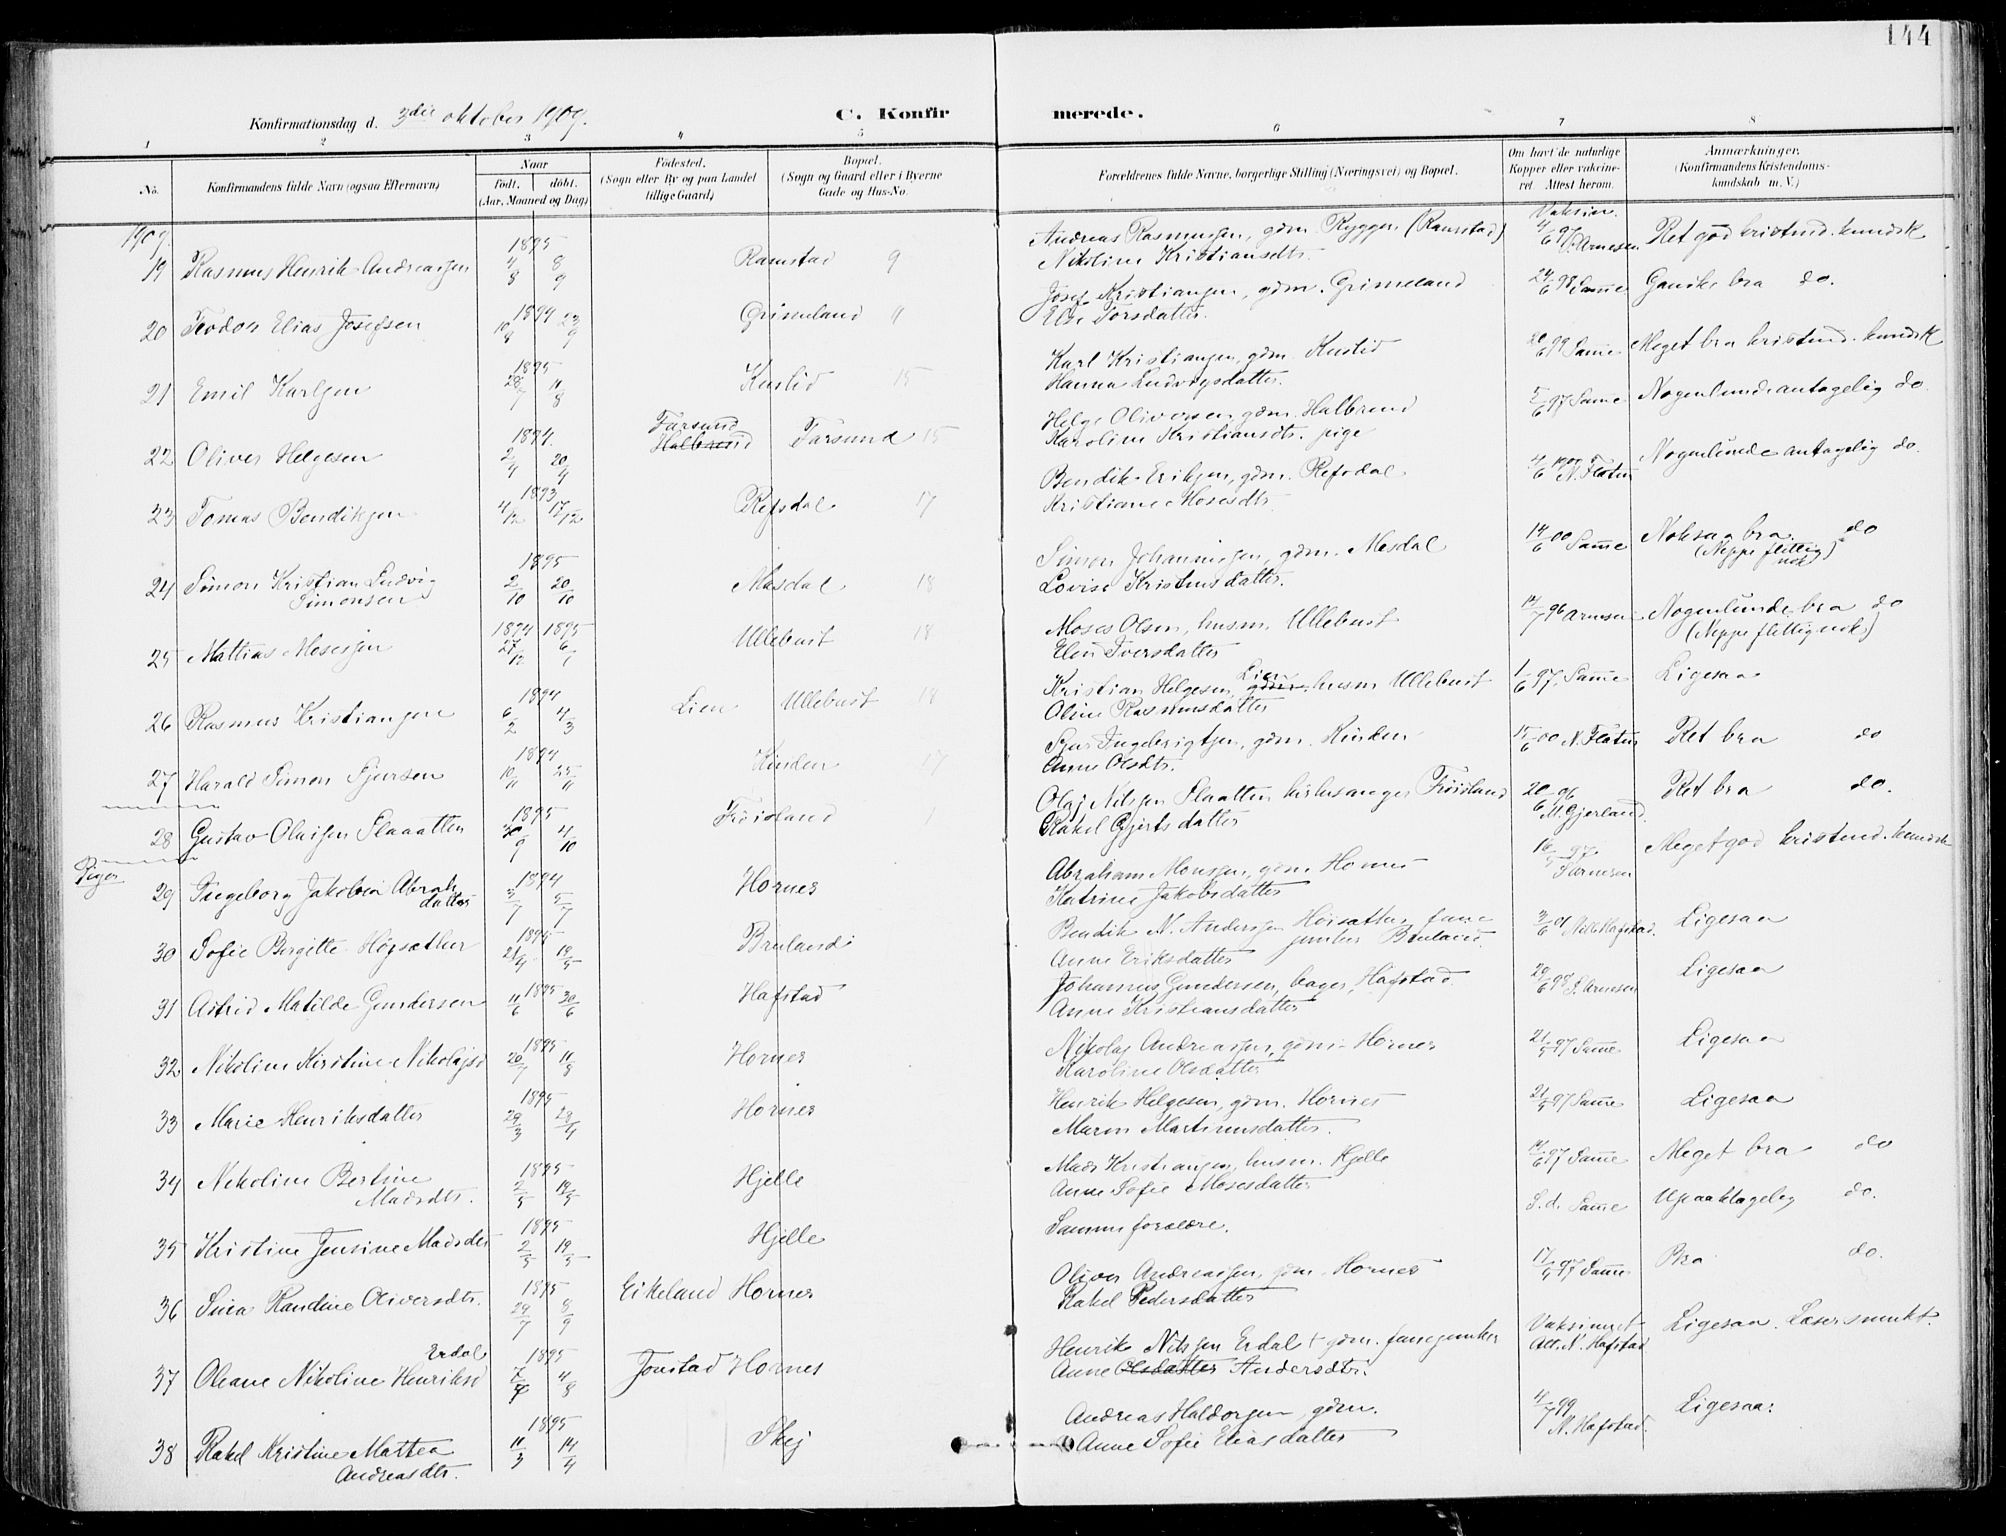 144
Konfirmationsdag d. 3die oktober 1909.
C. Konfirmerede.
1 2 3 4 5 6 7 8
No.
Konfirmandens fulde Navn (ogsaa Efternavn)
Naar
født. døbt.
(Aar, Maaned og Dag)
Fødested.
(Sogn eller By og paa Landet
tillige Gaard)
Bopæl.
(Sogn og Gaard eller i Byerne
Gade og Hus-No.
Forældrenes fulde Navne, borgerlige Stilling (Næringsvei) og Bopæl.
Om havt de naturlige
Kopper eller vakcine-
ret. Attest herom.
Anmærkninger.
(Konfirmandens Kristendoms-
kundskab m. V.)
1909.
19 Rasmus Henrik Andreassen 1895 4/8 8/9 Ramstad 9 Andreas Rasmussen, gdm. Rygger (Ramstad) Vaksin. 4/6 97 Arnesen Ret god kristnd. kundsk
Nikoline Kristiansdtr.
20 Teodor Elias Josefsen 1894 10/8 23/9 Grimeland 11 Josef Kristiansen, gdm. Grimeland 24/6 98 Samme Ganske bra do.
Else Torsdatter
21 Emil Karlsen 1895 28/7 11/8 Kustid 15 Karl Kristiansen, gdm. Kustid 20/6 99 Samme Meget bra kristnd. kundsk
Hanna Ludvigsdatter
22 Oliver Helgesen 1894. 2/4 20/4 Farsund Halbrend Farsund 15 Helge Oliversen, gdm. Halbrend 5/6 97 Samme Nogenlunde antagelig do
Karoline Kristiansdtr. pige
23 Tomas Bendiksen 1893 4/12 17/12 Refsdal 17 Bendik Eriksen, gdm. Refsdal 4/6 1900 N. Flatun Nogenlunde antagelig do.
Kristiane Mosesdtr
24 Simon Kristian Ludvig 1895 2/10 20/10 Masdal 18 Simon Johannessen, gdm. Masdal 14/6 00 Samme Noksaa bra. do
Simonsen Lovise Kristensdatter. (Neppe flittig nok)
25 Mattias Mosessen 1894 27/12 1895 6/1 Ullebust 18 Moses Olsen, husm. Ullebust 14/7 96 Arnesen Nogenlunde bra do
Elen Iversdatter (Neppe flittig nok)
26 Rasmus Kristiansen 1894 6/2 4/3 Lien Ullebust 18 Kristian Helgesen, Lien husm Ullebust 1/6 97. Samme Ligesaa
Oline Rasmusdatter
27 Harald Simon Sjursen 1894 10/11 25/11 Kinden 17 Sjur Ingebrigtsen, gdm. Kinden 15/6 00 N. Flatun Ret bra do
Anne Olsdtr.
28 Gustav Olaisen Slaatten 1895 30/9 4/10 Frøisland 1 Olaj Nilsen Slaatten kirkesanger Frøisland 20/6 96 M. Gjerland Ret bra do.
Rakel Gjertsdatter
Piger
29 Ingeborg Jakobia Abrah 1894 3/7 5/7 Hornes Abraham Monsen, gdm. Hornes 16/5 97 S. Arnesen Meget god kristnd. kundsk
datter Katrine Jakobsdatter
30 Sofie Birgitte Høysæther 1895 21/4 12/5 Bruland Bendik N. Andersen Høisæther, fane 3/6 01 Nils Hafstad. Ligesaa
junker Bruland.
Anne Eriksdatter
31 Astrid Matilde Gundersen 1895 11/6 30/6 Hafstad Johannes Gundersen, bager, Hafstad. 29/6 98 S. Arnesen Ligesaa
Anne Kristiansdatter
32 Nikoline Kirstine Nikolajsd 1895 20/7 11/8 Hornes Nikolaj Andreassen, gdm. Hornes 21/5 97 Samme Ligesaa
Karoline Olsdatter
33 Marie Henriksdatter 1895 29/3 28/4 Hornes Henrik Helgesen, gdm. Hornes 21/5 97 Samme Ligesaa
Maren Martinusdatter.
34 Nikoline Bertine 1895 2/5 19/5 Hjelle Mads Kristiansen, husm. Hjelle 14/6 97 Samme Meget bra do
Madsdtr. Anne Sofie Mosesdatter
35 Kristine Jensine Madsdtr 1895 2/5 19/5 Hjelle Samme forældre. S. d. Samme Upaaklagelig do.
36 Sina Randine Oliversdtr. 1895 29/7 8/9 Eikeland Hornes Oliver Andreassen, gdm. Hornes 17/5 97 Samme Bra do.
Rakel Pedersdatter
37 Oleane Nikoline Henriksd Erdal 1895 7/7 4/8 Jonstad Hornes Henrik Nilssen Erdal + gdm. fanejunker Vaksineret Att. N. Hafstad Ligesaa. Læser smukt.
Anne Olsdatter Andersdtr.
38 Rakel Kristine Mattea 1895 11/3 14/4 Skej Andreas Haldorsen, gdm. 4/7 99 N. Hafstad. Ligesaa.
Andreasdtr. Anne Sofie Eliasdatter